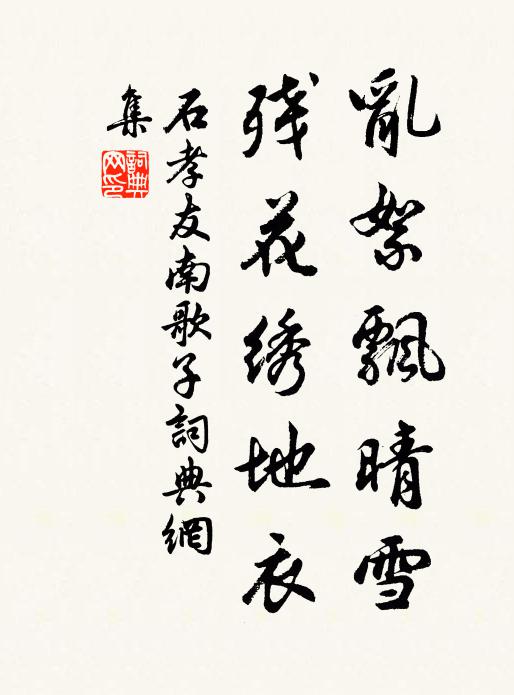 亂絮飄晴雪
残花绣地衣
石孝友南歌子詞典網
集
詞典
网印